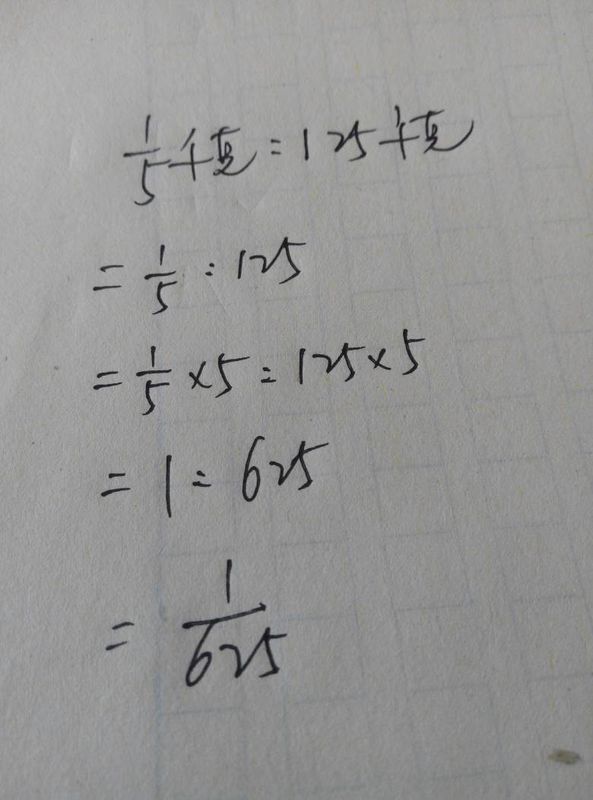 1/5千克:125千克
=1/5:125
=1/5×5:125×5
=1:625
=1/625